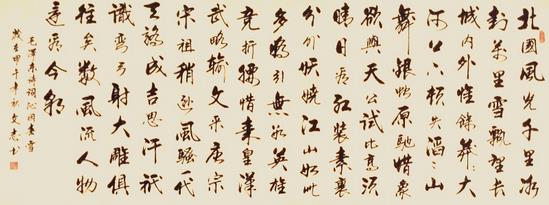 北國風光千里冰
封萬里雪飄望長
城内外惟餘莽莽大
河上下頓失滔滔山
舞銀蛇原馳蠟象
欲與天公試比高須
晴日看紅裝素裹
分外妖嬈江山如此
多嬌引無數英雄
競折腰惜秦皇漢
武略輸文采唐宗
宋祖稍遜風騷一代
天驕成吉思汗祇
識彎弓射大雕俱
往矣數風流人物
還看今朝
毛澤東詩詞沁園春雪
歲在甲午年秋文書